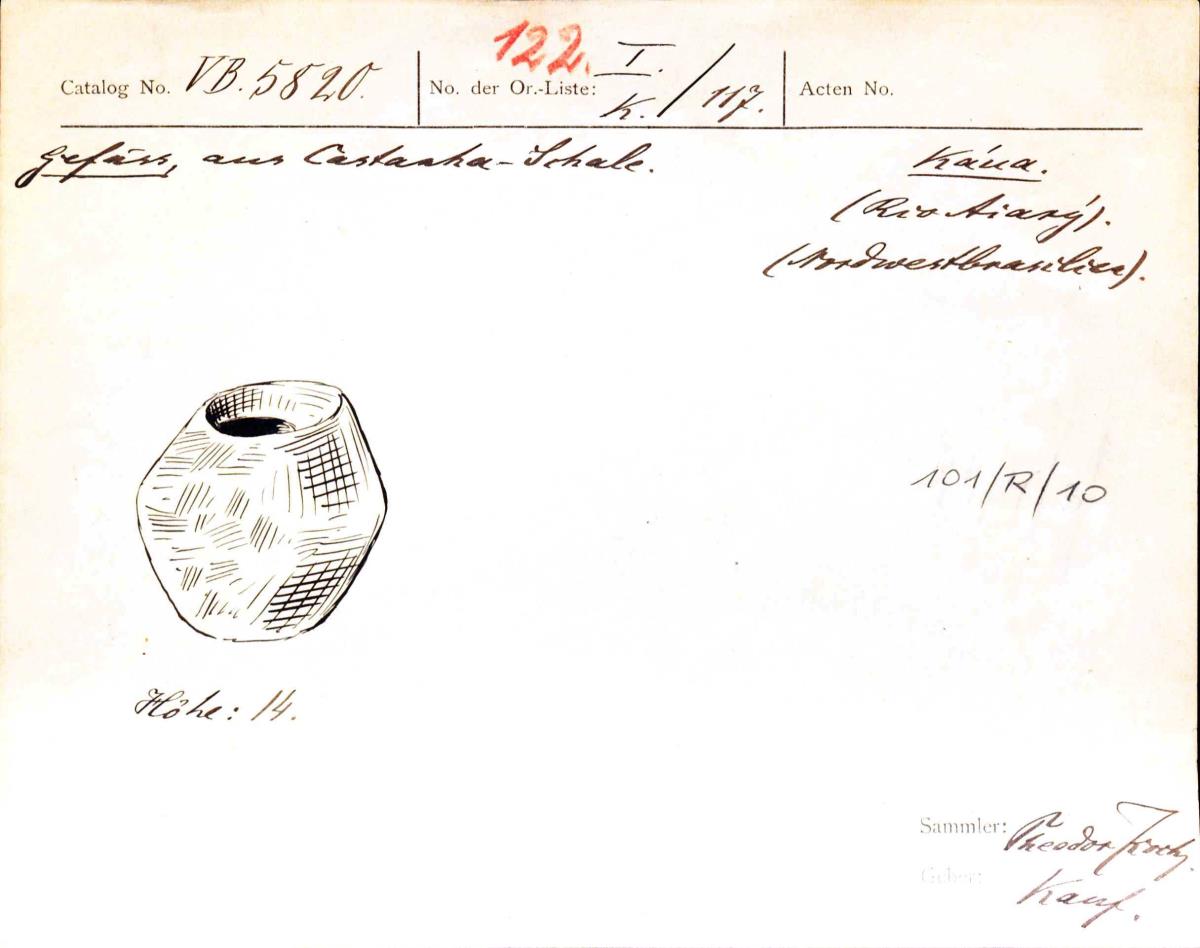 Catalog No. VB. 5820. No. der Or.-Liste: 122. I. K./117. Acten No.
Gefäss, aus Castanha-Schale. Káua.
(Rio Aiarý).
(Nordwestbrasilien).
101/R/10
Höhe: 14.
Sammler: Theodor Koch.
Geber: Kauf.